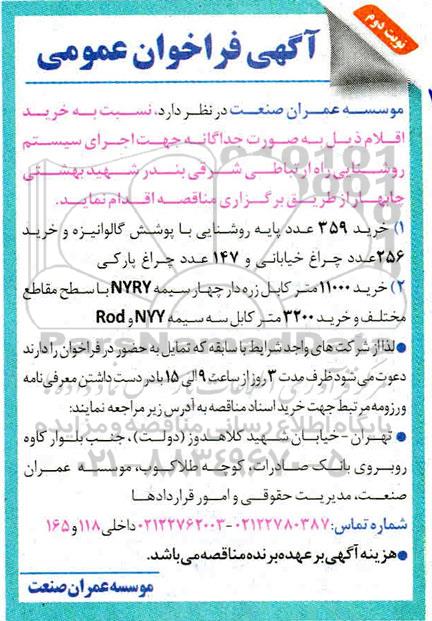 نوبت دوم
آگهی فراخوان عمومی
موسسه عمران صنعت در نظر دارد، نسبت به خرید
اقلام ذیل به صورت جداگانه جهت اجرای سیستم
روشنایی راه ارتباطی شرقی بندر شهید بهشتی
چابهار از طریق برگزاری مناقصه اقدام نماید.
۱) خرید ۳۵۹ عدد پایه روشنایی با پوشش گالوانیزه و خرید
۲۵۶ عدد چراغ خیابانی و ۱۴۷ عدد چراغ پارکی
۲) خرید ۱۱۰۰۰ متر کابل زره دار چهار سیمه NYRY با سطح مقاطع
مختلف و خرید ۳۲۰۰ متر کابل سه سیمه NYY و Rod
● لذا از شرکت های واجد شرایط با سابقه که تمایل به حضور در فراخوان را دارند
دعوت می شود ظرف مدت ۳ روز از ساعت ۹ الی ۱۵ با در دست داشتن معرفی نامه
و رزومه مرتبط جهت خرید اسناد مناقصه به آدرس زیر مراجعه نمایند:
● تهران - خیابان شهید کلاهدوز (دولت)، جنب بلوار کاوه
روبروی بانک صادرات، کوچه طلاکوب، موسسه عمران
صنعت، مدیریت حقوقی و امور قراردادها
شماره تماس: ۰۲۱۲۲۷۸۰۳۸۷-۰۲۱۲۲۷۶۲۰۰۳ داخلی ۱۱۸ و ۱۶۵
● هزینه آگهی بر عهده برنده مناقصه می باشد.
موسسه عمران صنعت
ParsNamadData
پایگاه اطلاع رسانی مناقصه و مزایده
۰۲۱-۸۸۳۴۹۶۷۰-۵